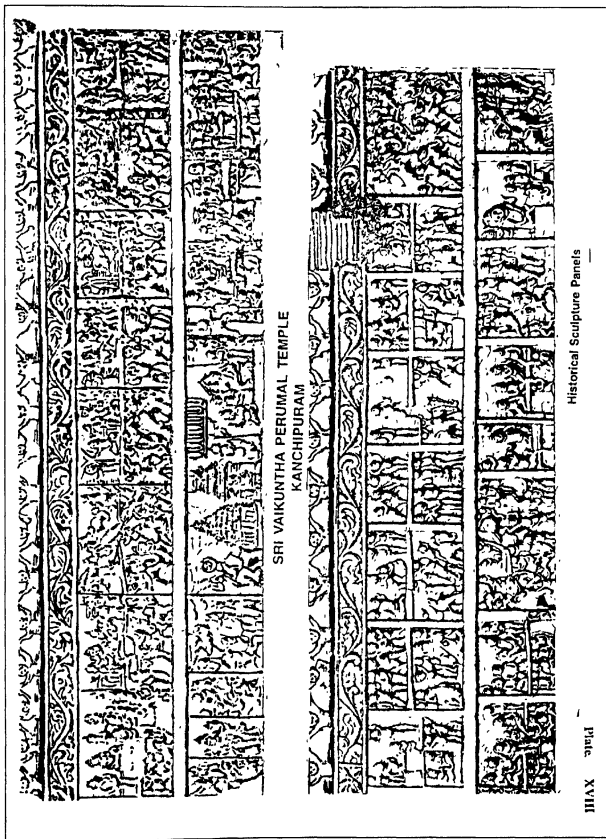 SRI VAIKUNTHA PERUMAL TEMPLE
KANCHIPURAM
Historical Sculpture Panels
Plate XVIII